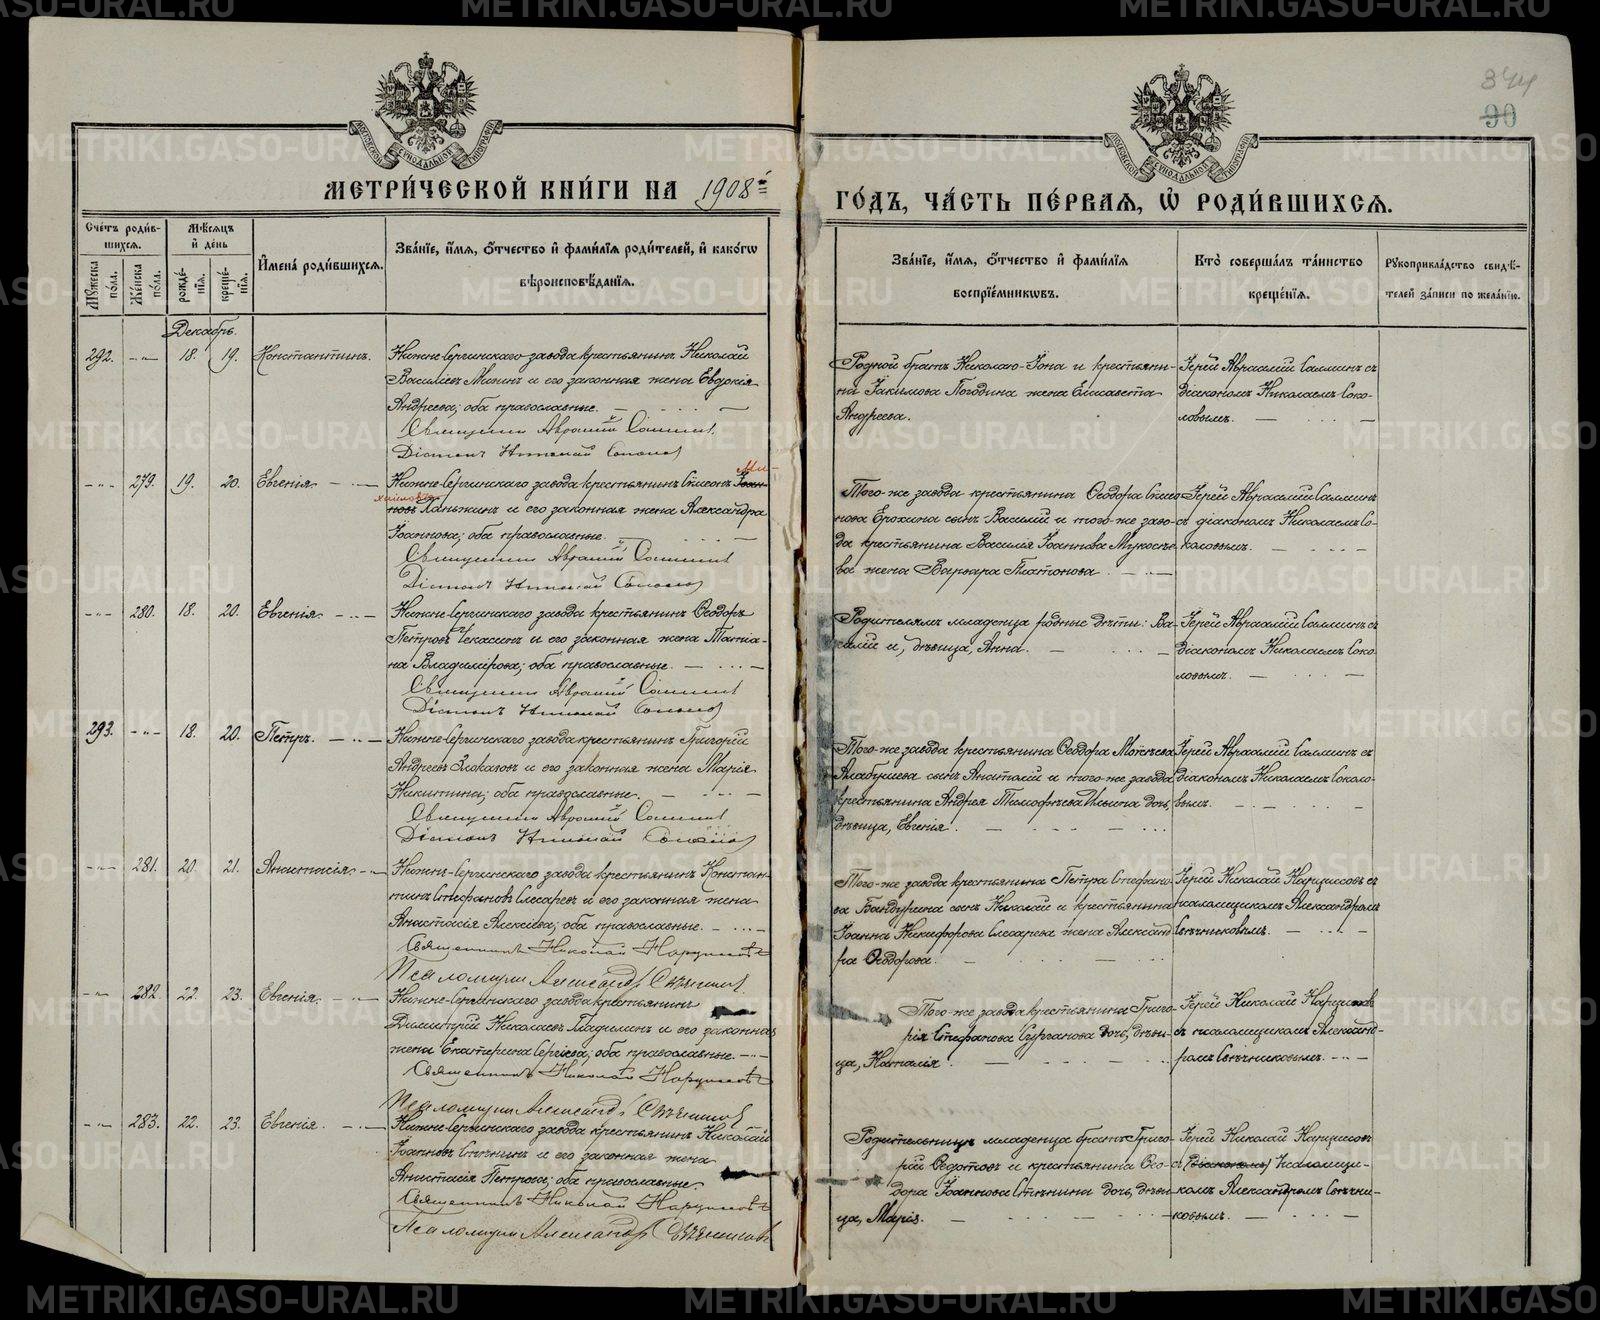 344
90
МЕТРИ́ЧЕСКОЙ КНИ́ГИ НА 1908й
ГО́ДЪ, ЧА́СТЬ ПЕ́РВАЯ, Ѡ҆ РОДИ́ВШИХСЯ.
Сче́тъ роди́вшихся.
Му́жеска по́ла.
Же́нска по́ла.
Мѣ́сяцъ и де́нь
рожде́нїя.
креще́нїя.
И҆мена́ роди́вшихся.
Зва́нїе, и҆́мя, ѻ҆́тчество и҆ фами́лїя роди́телей, и҆ како́гѡ
вѣроисповѣ́данїя.
Зва́нїе, и҆́мя, ѻ҆́тчество и҆ фами́лїя
воспрїе́мникѡвъ.
Кто̀ соверша́лъ та́инство
креще́нїя.
Рꙋкоприкла́дство свидѣ́-
телей за́писи по жела́нїю.
Декабрь.
292. 18. 19. Константинъ.
Нижне-Сергинскаго завода крестьянинъ Николай
Василіевъ Мининъ и его законная жена Евдокія
Андреева; оба православные.
Священникъ Авраамій
Діаконъ Николай Соколов
Родной братъ Николаю-Іона и крестьяни-
на Іакимова Погодина жена Елисавета
Андреева.
Іерей Авраамій съ
діакономъ Николаемъ Соко-
ловымъ.
279. 19. 20. Евгенія.
Нижне-Сергинскаго завода крестьянинъ Симеонъ Іоан-
новъ и его законная жена Александра
Іоаннова; оба православные.
Священникъ Авраамій
Діаконъ Николай Соколов
Того-же завода крестьянина Ѳеодора Симео
нова Ерохина сынъ Василій и того-же заво-
да крестьянина Василія Іоаннова
ва жена Варвара Платонова
Іерей Авраамій
съ діакономъ Николаемъ Со-
коловымъ.
280. 18. 20. Евгенія.
Нижне-Сергинскаго завода крестьянинъ Ѳеодоръ
Петровъ Чекасинъ и его законная жена Татіа-
на Владимірова; оба православные.
Священникъ Авраамій
Діаконъ Николай Соколов
Родителямъ младенца родные дѣти: Ва-
силій и, дѣвица, Анна.
Іерей Авраамій съ
діакономъ Николаемъ Соко-
ловымъ.
293. 18. 20. Петръ.
Нижне-Сергинскаго завода крестьянинъ Григорій
Андреевъ Злоказовъ и его законная жена Марія
Никитина; оба православные.
Священникъ Авраамій
Діаконъ Николай Соколов
Того-же завода крестьянина Ѳеодора Матвѣева
Алабушева сынъ Анатолій и того-же завода
крестьянина Андрея Тимофѣева Ильина дочь,
дѣвица, Евгенія.
Іерей Авраамій съ
діакономъ Николаемъ Соколо-
вымъ.
281. 20. 21. Анастасія.
Нижне-Сергинскаго завода крестьянинъ Констан-
тинъ Стефановъ Слесаревъ и его законная жена
Анастасія Алексіева; оба православные.
Священникъ Николай Нарциссовъ
Псаломщикъ Александръ Свѣчников
Того-же завода крестьянина Петра Стефано-
ва Бандурина сынъ Николай и крестьянина
Іоанна Никифорова Слесарева жена Александ-
ра Ѳеодорова.
Іерей Николай Нарциссовъ съ
псаломщикомъ Александромъ
Свѣчниковымъ.
282. 22. 23. Евгенія.
Нижне-Сергинскаго завода крестьянинъ
Димитрій Николаевъ и его законная
жена Екатерина Сергіева; оба православные.
Священникъ Николай Нарциссовъ
Псаломщикъ Александръ Свѣчников
Того-же завода крестьянина Григо-
рія Стефанова Сурганова дочь, дѣви-
ца, Наталія.
Іерей Николай Нарциссовъ
съ псаломщикомъ Александ-
ромъ Свѣчниковымъ.
283. 22. 23. Евгенія.
Нижне-Сергинскаго завода крестьянинъ Николай
Іоанновъ и его законная жена
Анастасія Петрова; оба православные.
Священникъ Николай Нарциссовъ
Псаломщикъ Александръ Свѣчниковъ
Родительницѣ младенца братъ Григо-
рій Ѳедотовъ и крестьянина Ѳео-
дора Іоаннова дочь, дѣви-
ца, Марія.
Іерей Николай Нарциссовъ
съ (діакономъ) псаломщи-
комъ Александромъ Свѣчни-
ковымъ.
METRIKI.GASO-URAL.RU